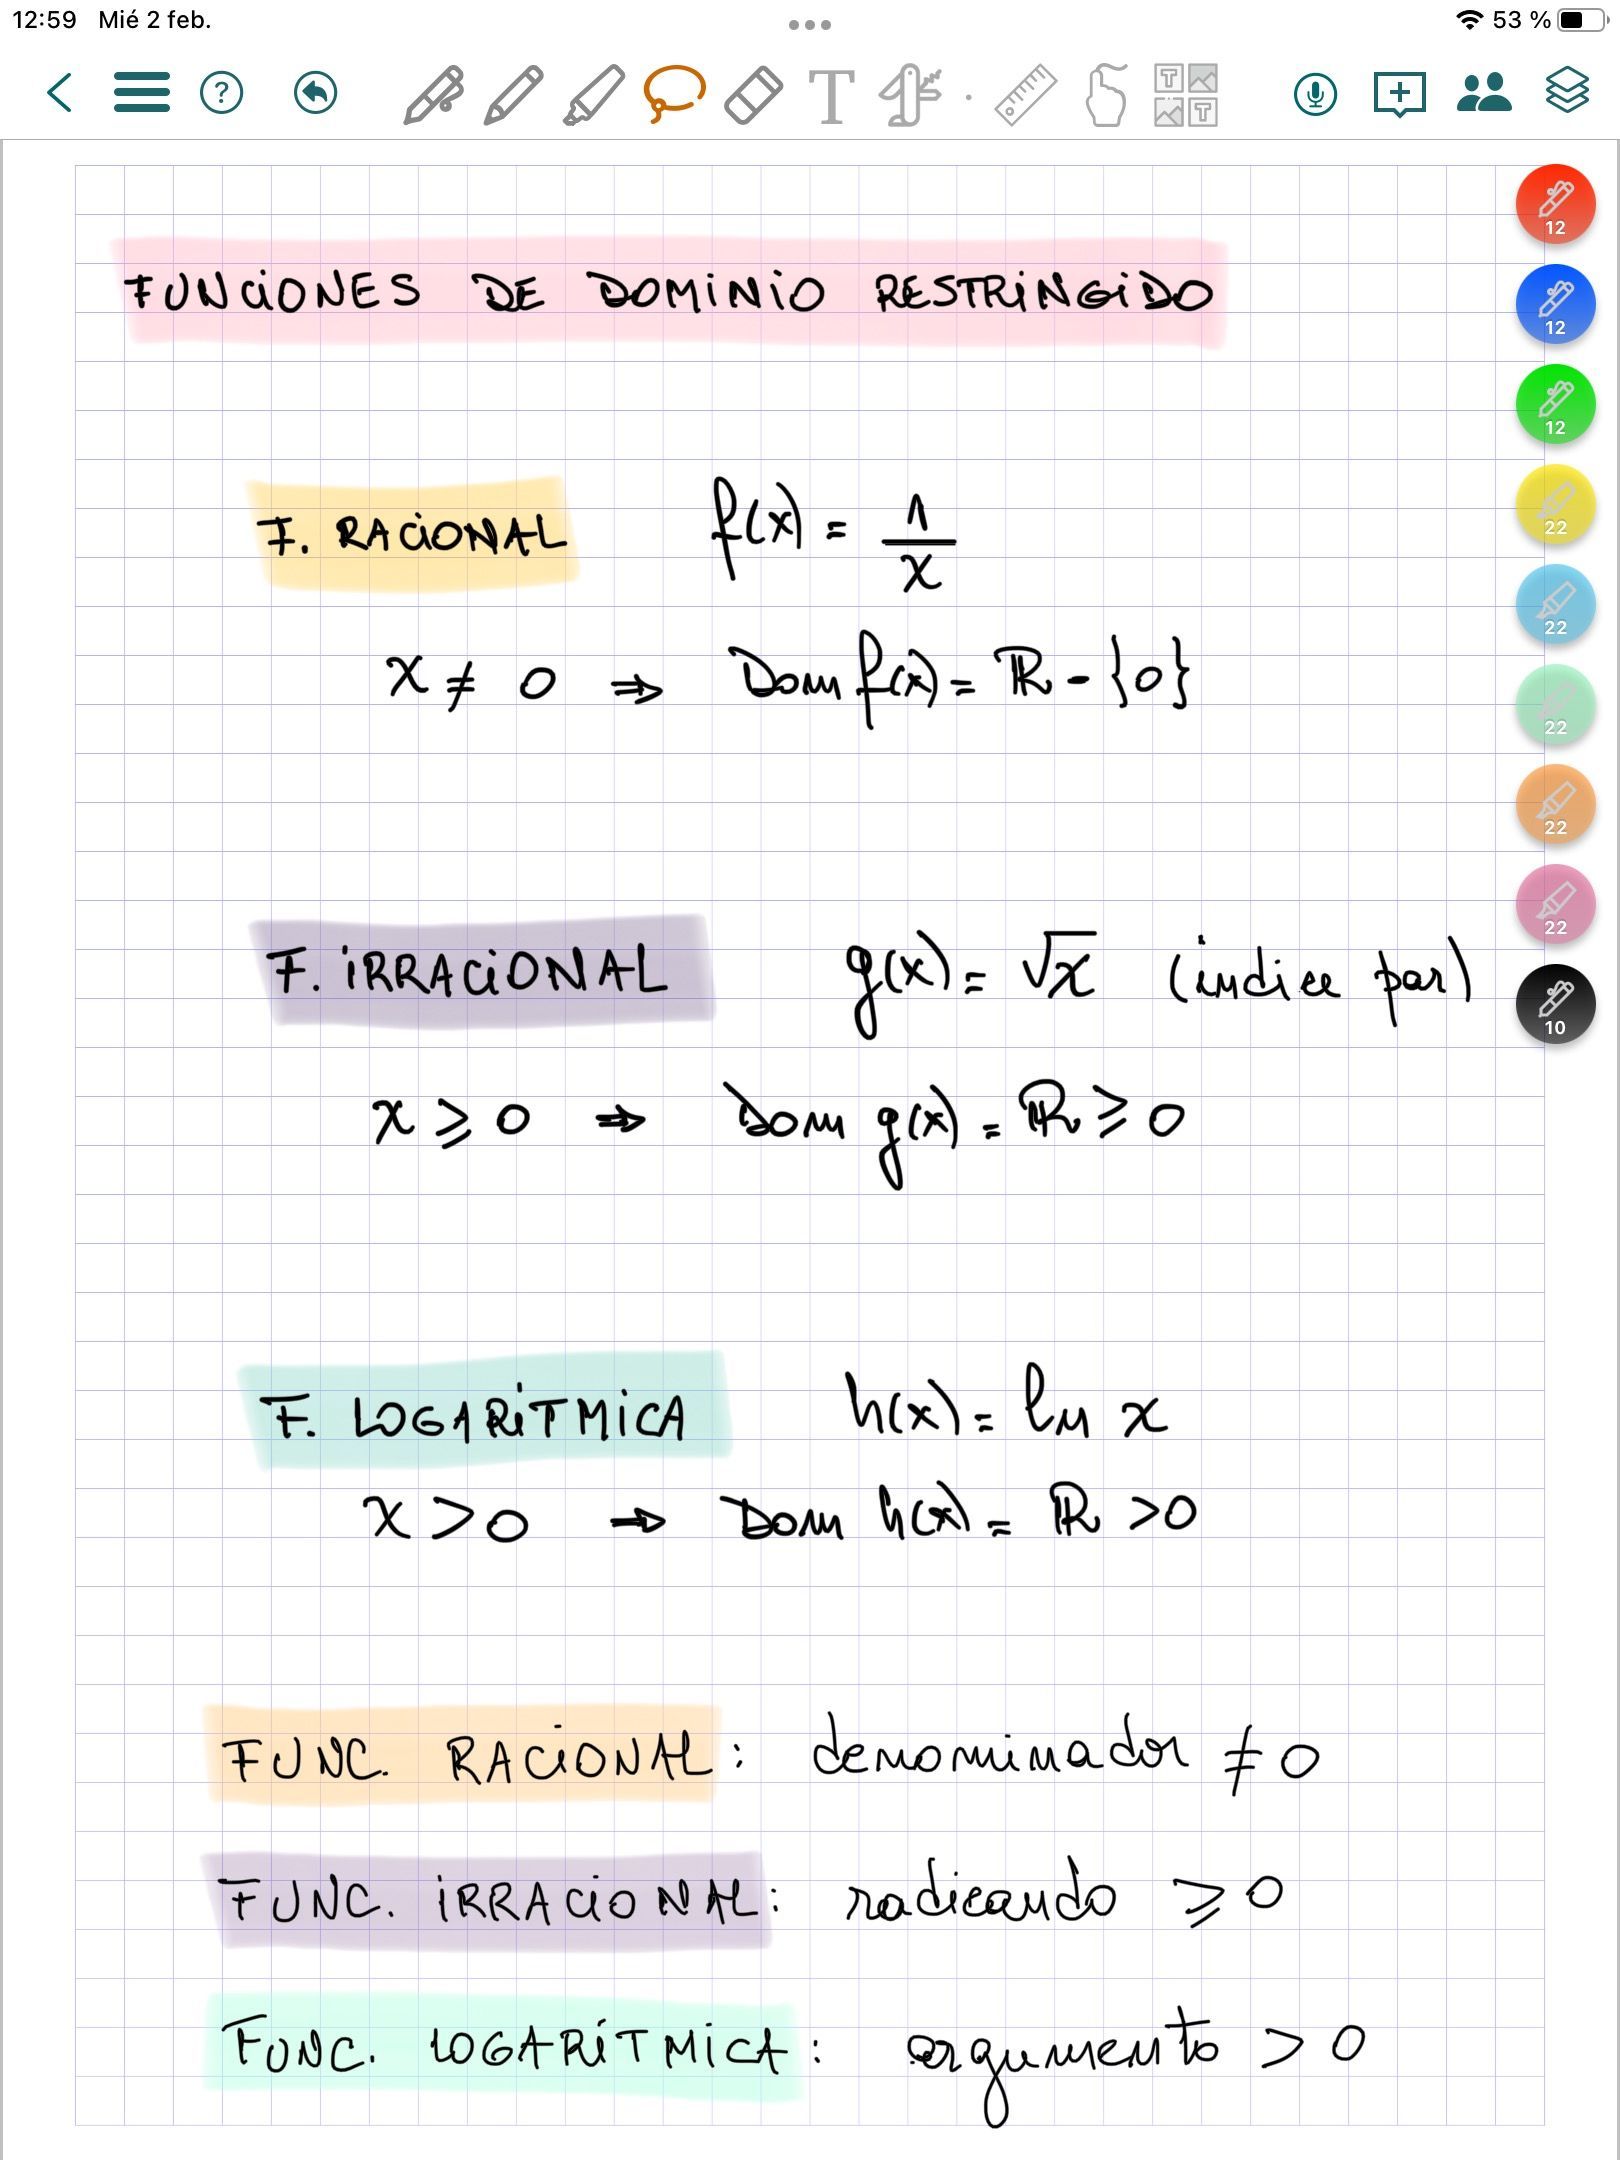 12:59 Mié 2 feb.
53 %
T
12
12
12
22
22
22
22
22
10
FUNCIONES DE DOMINIO RESTRINGIDO
F. RACIONAL f(x) = 1/x
x ≠ 0 ⇒ Dom f(x) = ℝ - {0}
F. IRRACIONAL g(x) = √x (índice par)
x ⩾ 0 ⇒ Dom g(x) = ℝ ⩾ 0
F. LOGARÍTMICA h(x) = ln x
x > 0 ⇒ Dom h(x) = ℝ > 0
FUNC. RACIONAL: denominador ≠ 0
FUNC. IRRACIONAL: radicando ⩾ 0
FUNC. LOGARÍTMICA: argumento > 0